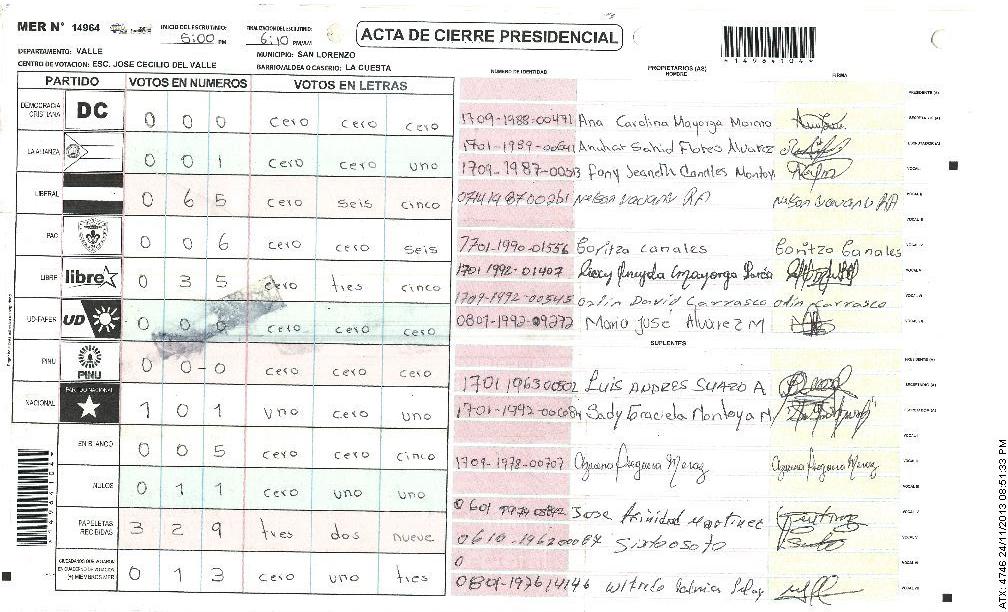 MER N° 14964
INICIO DEL ESCRUTINIO: 5:00 PM
FINALIZACION DEL ESCRUTINIO: 6:10 PM/AM
ACTA DE CIERRE PRESIDENCIAL
*14964104*
DEPARTAMENTO: VALLE
MUNICIPIO: SAN LORENZO
CENTRO DE VOTACION: ESC. JOSE CECILIO DEL VALLE
BARRIO/ALDEA O CASERIO: LA CUESTA
PARTIDO VOTOS EN NUMEROS VOTOS EN LETRAS
DEMOCRACIA CRISTIANA DC 0 0 0 cero cero cero
LA ALIANZA 0 0 1 cero cero uno
LIBERAL 0 6 5 cero seis cinco
PAC 0 0 6 cero cero seis
LIBRE libre 0 3 5 cero tres cinco
UD-FAPER UD 0 0 0 cero cero cero
PINU PINU 0 0-0 cero cero cero
NACIONAL PARTIDO NACIONAL 1 0 1 uno cero uno
EN BLANCO 0 0 5 cero cero cinco
NULOS 0 1 1 cero uno uno
PAPELETAS RECIBIDAS 3 2 9 tres dos nueve
CIUDADANOS QUE VOTARON EN CUADERNO DE VOTACION (+) MIEMBROS MER 0 1 3 cero uno tres
NUMERO DE IDENTIDAD PROPIETARIOS (AS) NOMBRE FIRMA
PRESIDENTE (A)
1709-1988-00471 Ana Carolina Mayorga Moreno
SECRETARIO (A)
1701-1989-00541 Flores Alvarez
ESCRUTADOR (A)
1709-1987-00513 Fany Jeaneth Canales Montoy
VOCAL I
Nelson
VOCAL II
VOCAL III
1701-1990-01556 Boritza Canales Boritza Canales
1701 1992-01407 Mayorga
VOCAL V
1709-1992-00545 Odin David Carrasco Odin Carrasco
0801-1992-09272 Mario José Alvarez M
SUPLENTES
PRESIDENTE (A)
1701 1963 00502 LUIS ANDRES SUAZO A
SECRETARIO (A)
1701-1992-00684 Sady Graciela Montoya M
ESCRUTADOR (A)
VOCAL I
1709-1978-00707
VOCAL II
VOCAL III
0601 Jose Trinidad Martinez
0610-1962 Soto
VOCAL V
0
0801-1976 14146 Wilfredo
ATX: 4746 24/11/2013 08:51:33 PM